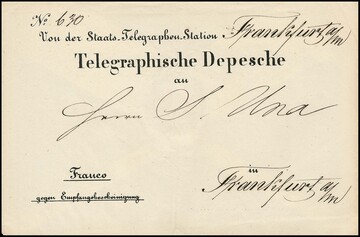 No 630
Von der Staats-Telegraphen-Station Frankfurt a/m
Telegraphische Depesche
an
Herrn S. Una
in
Franco Frankfurt a/m
gegen Empfangsbescheinigung